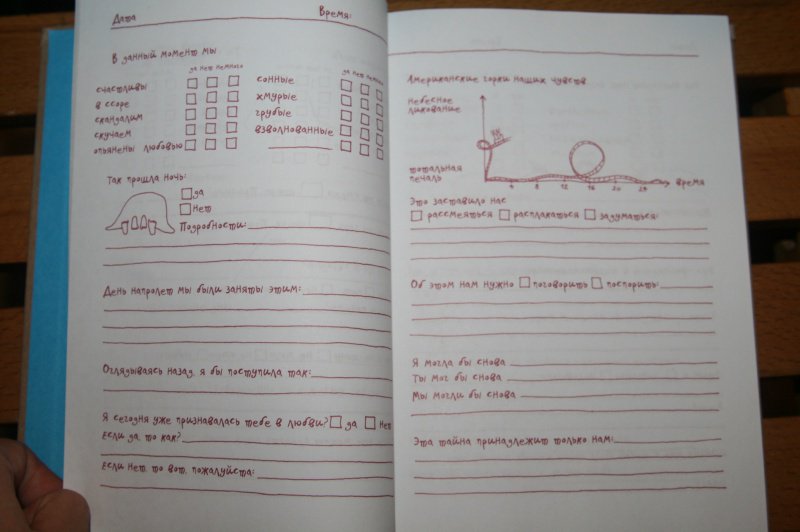 Дата Время:
В данный момент мы
да нет немного
да нет немного
счастливы
в ссоре
скандалим
скучаем
опьянены любовью
сонные
хмурые
грубые
взволнованные
Так прошла ночь:
да
нет
Подробности:
День напролет мы были заняты этим:
Оглядываясь назад, я бы поступила так:
Я сегодня уже признавалась тебе в любви? да нет
Если да, то как?
Если нет, то вот, пожалуйста:
Американские горки наших чувств
небесное
ликование
тотальная
печаль
4 8 12 16 20 24
время
Это заставило нас
рассмеяться расплакаться задуматься:
Об этом нам нужно поговорить поспорить:
Я могла бы снова
Ты мог бы снова
Мы могли бы снова
Эта тайна принадлежит только нам: